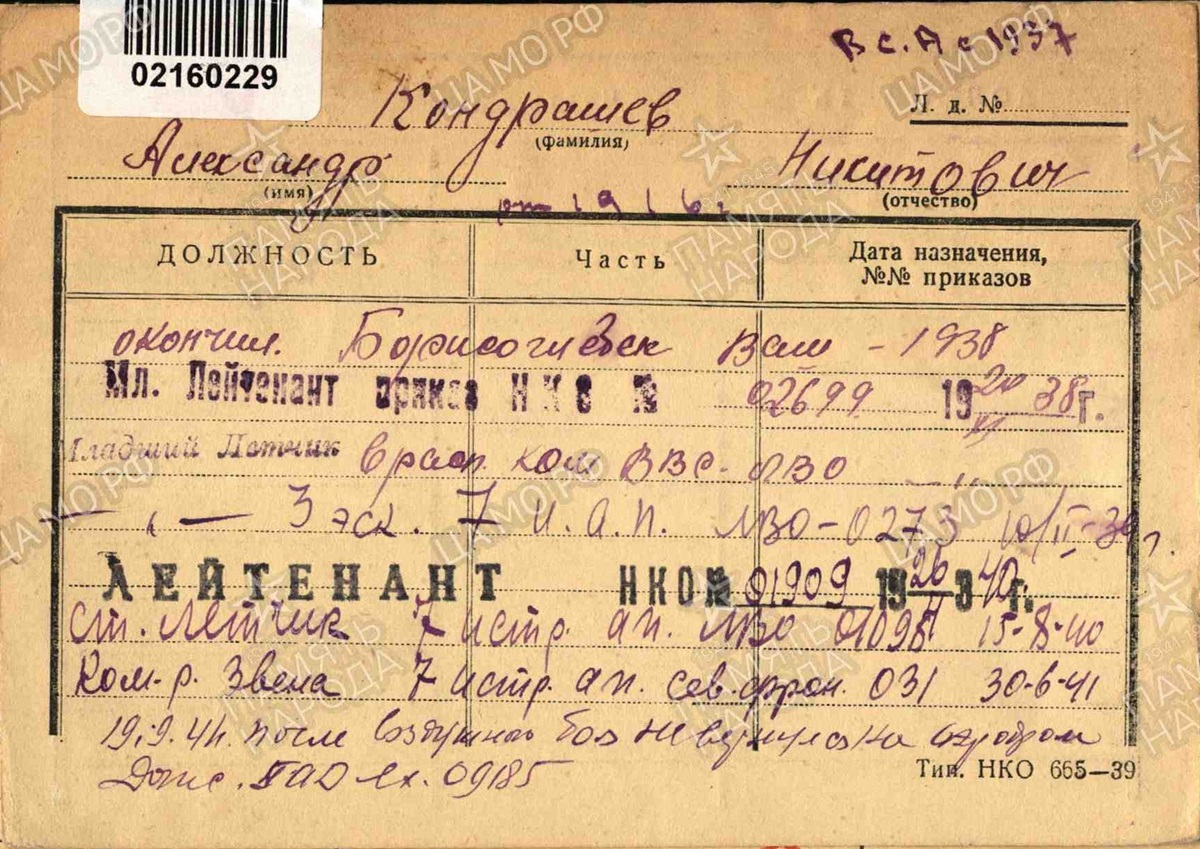 02160229
В с. А с 1937
Кондрашев
Л. д. №
(фамилия)
Александр Никитович
(имя) (отчество)
1916 г
ДОЛЖНОСТЬ Часть Дата назначения, №№ приказов
окончил. Борисоглебск Ваш - 1938
Мл. Лейтенант приказ НКО № 02699 1920/XII 38 г.
Младший Летчик в расп. ком ВВС. ЛВО — " —
— " — 3 эск. 7 и.а.п. ЛВО - 0273 10/II-39 г.
ЛЕЙТЕНАНТ НКО № 01909 1926/3 40 г.
Ст. Летчик 7 истр. ап. ЛВО 15-8-40
Ком-р. Звена 7 истр. ап. сев. фрон. 031 30-6-41
19.9.41. после воздушного боя не вернулся на аэродром
Донс. IAD вх. 09185
Тип. НКО 665—39
ЦАМО.РФ
ПАМЯТЬ НАРОДА
1941-1945